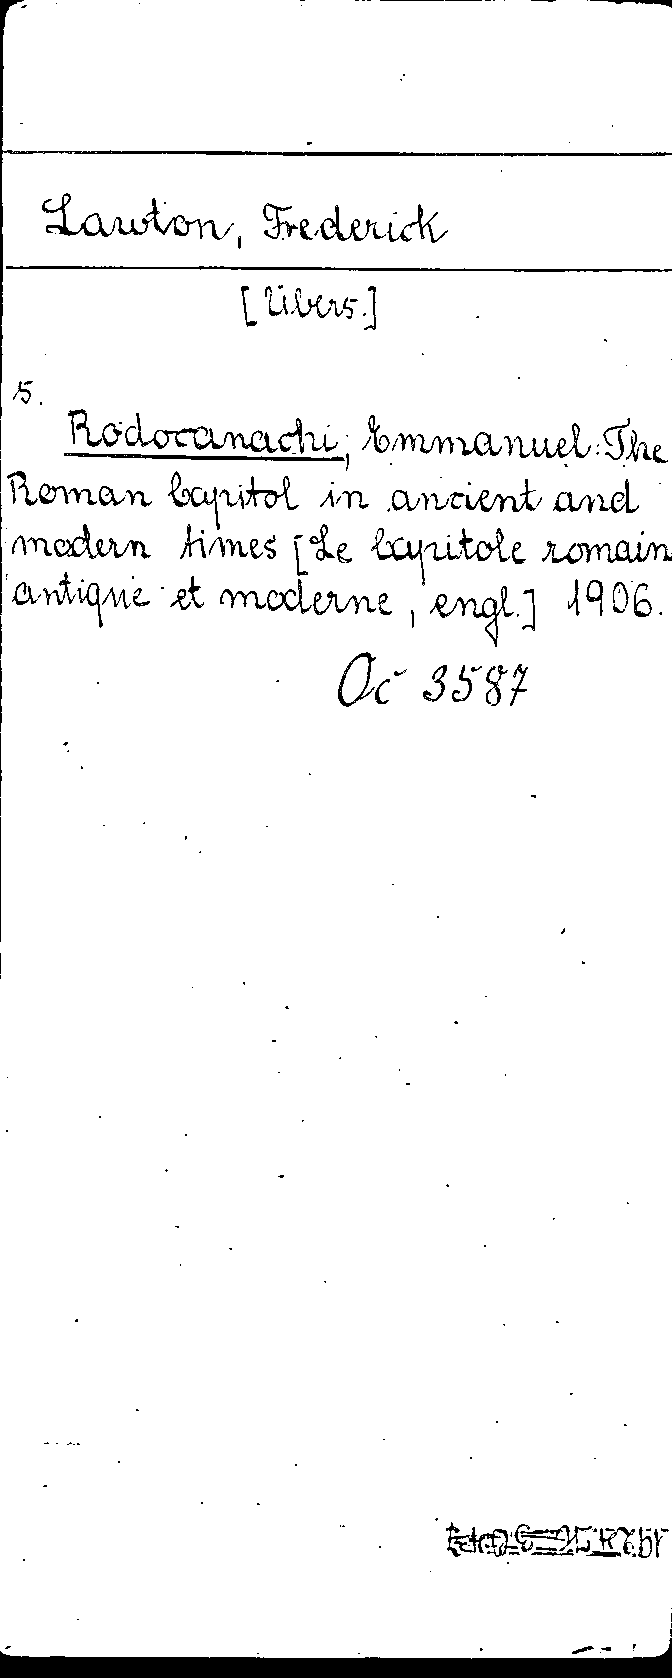 Lawton, Frederick
[Übers.]
5.
Rodocanachi, Emmanuel: The
Roman Capitol in ancient and
modern times [Le Capitole romain
antique et moderne, engl.] 1906.
Oc 3587